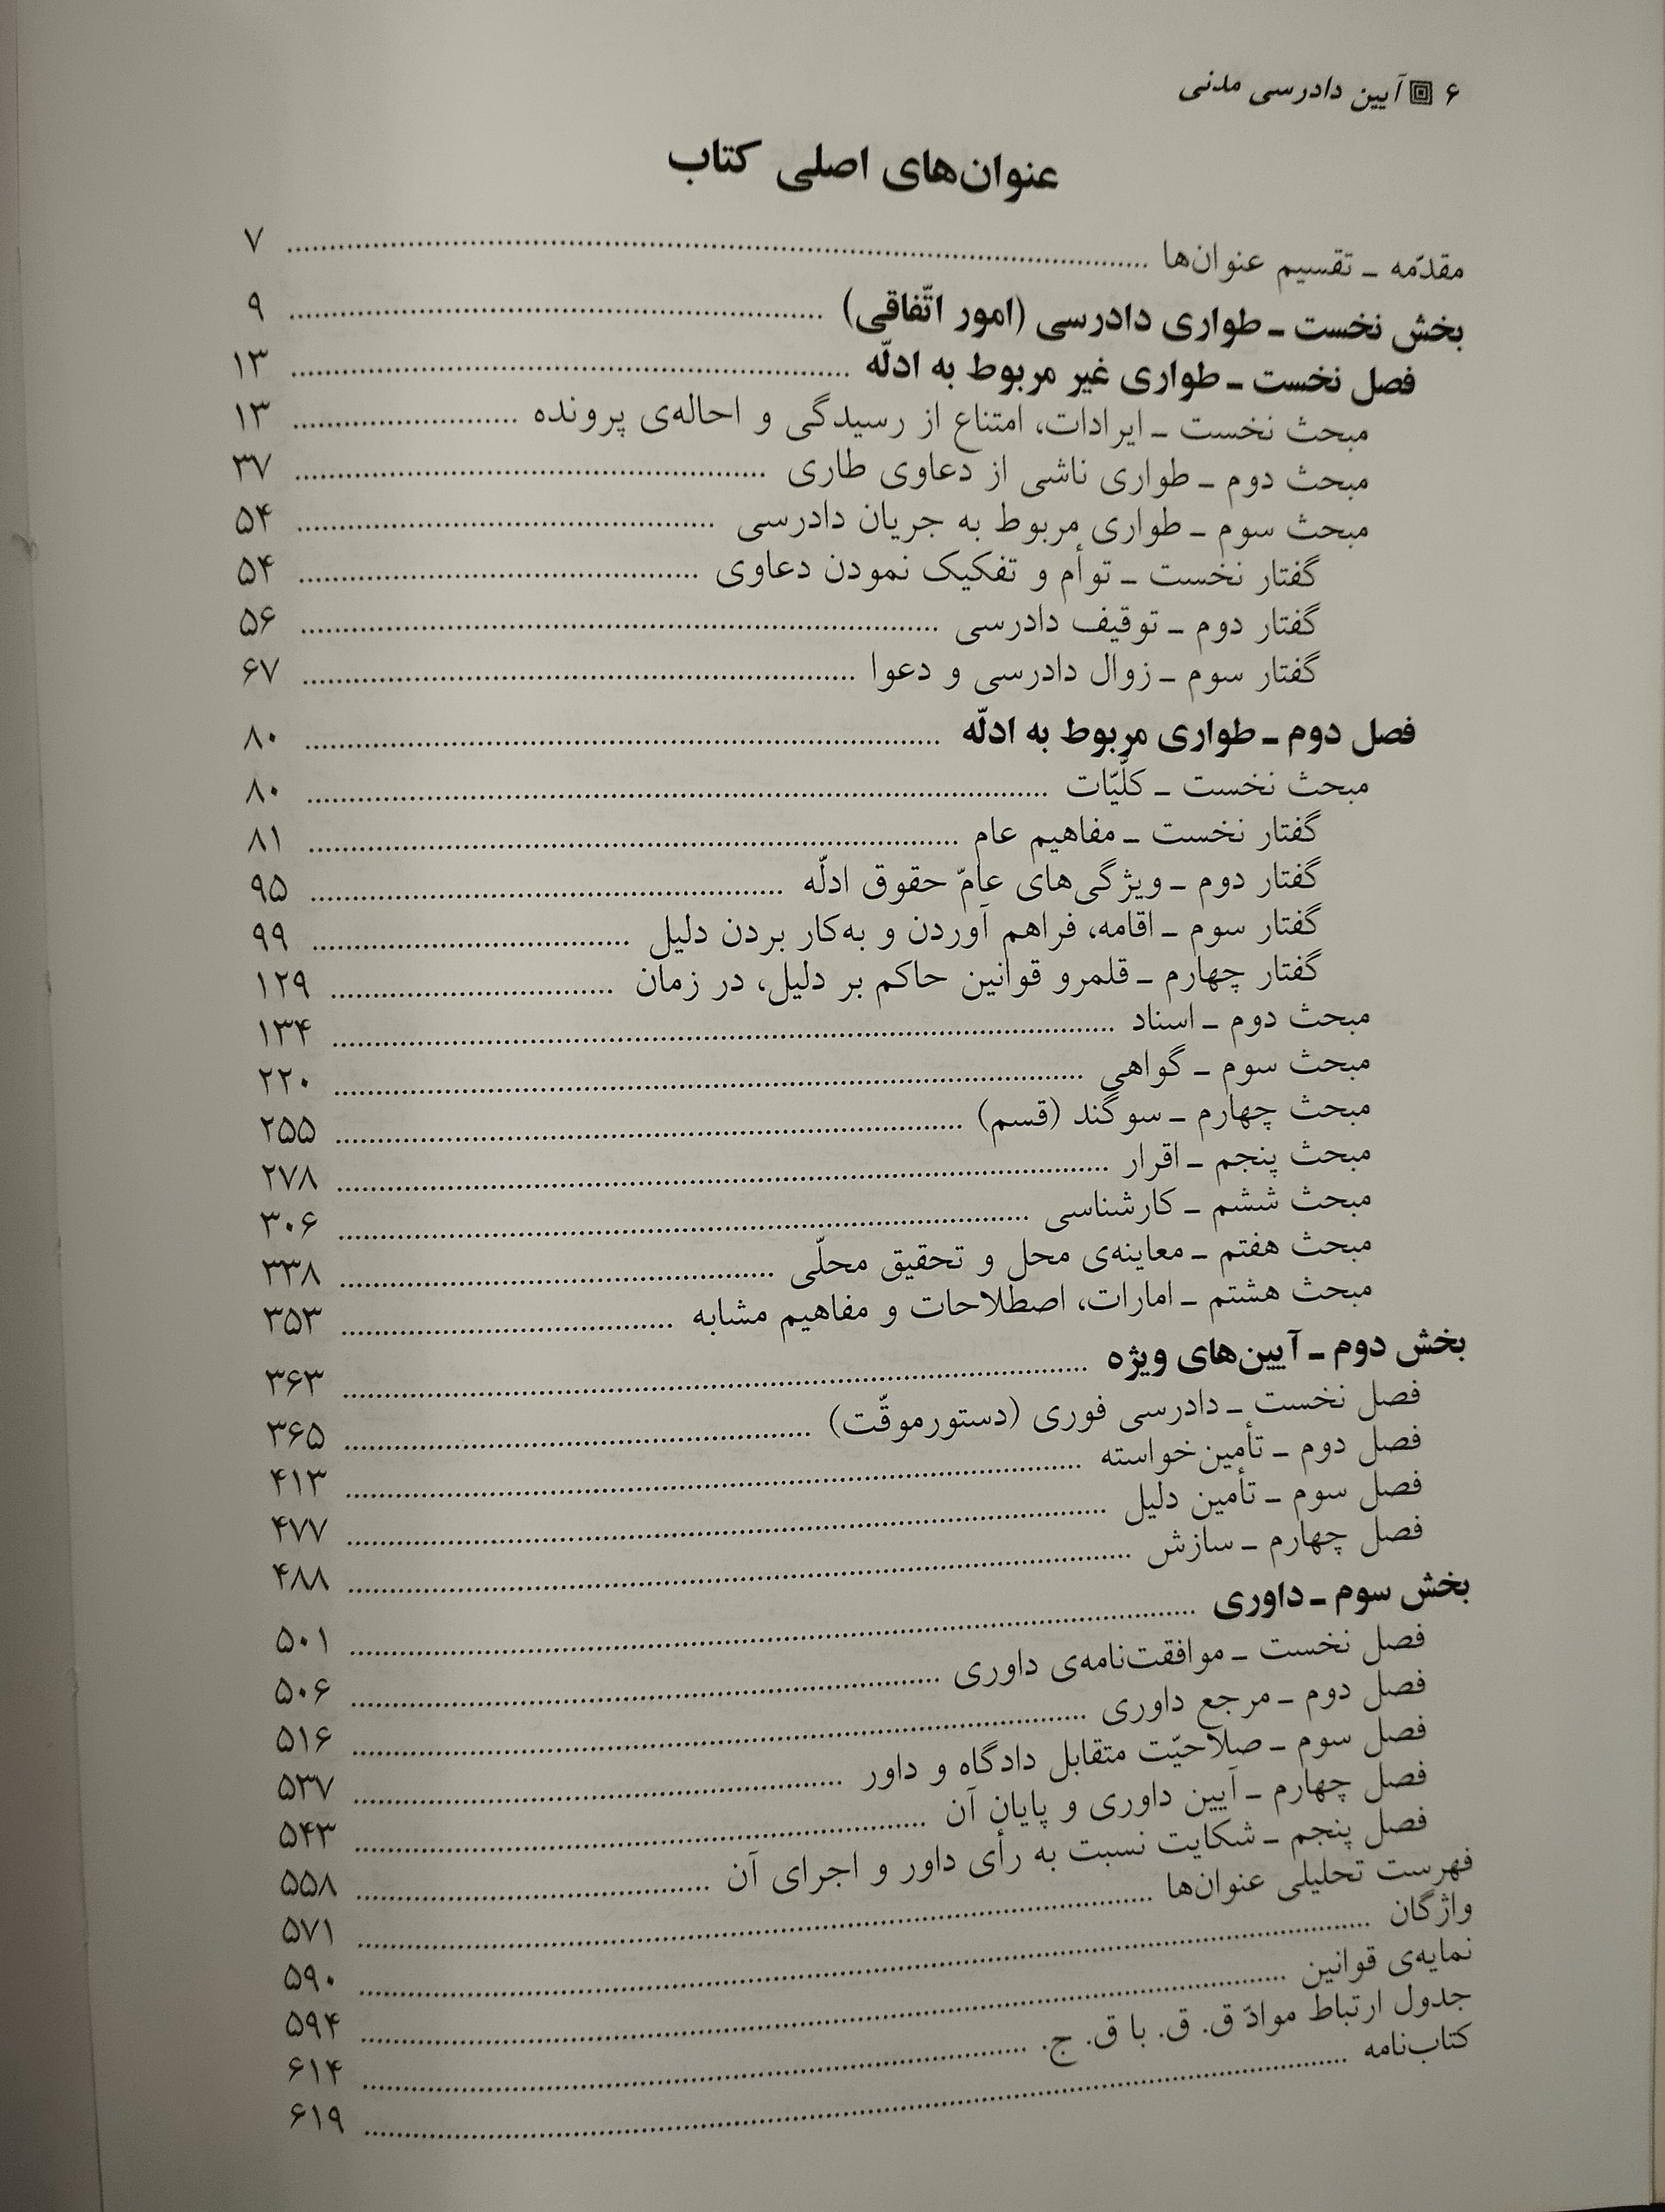 ۶ آیین دادرسی مدنی
عنوان‌های اصلی کتاب
مقدّمه ـ تقسیم عنوان‌ها ........ ۷
بخش نخست ـ طواری دادرسی (امور اتّفاقی) ........ ۹
فصل نخست ـ طواری غیر مربوط به ادلّه ........ ۱۳
مبحث نخست ـ ایرادات، امتناع از رسیدگی و احاله‌ی پرونده ........ ۱۳
مبحث دوم ـ طواری ناشی از دعاوی طاری ........ ۳۷
مبحث سوم ـ طواری مربوط به جریان دادرسی ........ ۵۴
گفتار نخست ـ توأم و تفکیک نمودن دعاوی ........ ۵۴
گفتار دوم ـ توقیف دادرسی ........ ۵۶
گفتار سوم ـ زوال دادرسی و دعوا ........ ۶۷
فصل دوم ـ طواری مربوط به ادلّه ........ ۸۰
مبحث نخست ـ کلّیّات ........ ۸۰
گفتار نخست ـ مفاهیم عام ........ ۸۱
گفتار دوم ـ ویژگی‌های عامّ حقوق ادلّه ........ ۹۵
گفتار سوم ـ اقامه، فراهم آوردن و به‌کار بردن دلیل ........ ۹۹
گفتار چهارم ـ قلمرو قوانین حاکم بر دلیل، در زمان ........ ۱۲۹
مبحث دوم ـ اسناد ........ ۱۳۴
مبحث سوم ـ گواهی ........ ۲۲۰
مبحث چهارم ـ سوگند (قسم) ........ ۲۵۵
مبحث پنجم ـ اقرار ........ ۲۷۸
مبحث ششم ـ کارشناسی ........ ۳۰۶
مبحث هفتم ـ معاینه‌ی محل و تحقیق محلّی ........ ۳۳۸
مبحث هشتم ـ امارات، اصطلاحات و مفاهیم مشابه ........ ۳۵۳
بخش دوم ـ آیین‌های ویژه ........ ۳۶۳
فصل نخست ـ دادرسی فوری (دستورموقّت) ........ ۳۶۵
فصل دوم ـ تأمین‌خواسته ........ ۴۱۳
فصل سوم ـ تأمین دلیل ........ ۴۷۷
فصل چهارم ـ سازش ........ ۴۸۸
بخش سوم ـ داوری ........ ۵۰۱
فصل نخست ـ موافقت‌نامه‌ی داوری ........ ۵۰۶
فصل دوم ـ مرجع داوری ........ ۵۱۶
فصل سوم ـ صلاحیّت متقابل دادگاه و داور ........ ۵۳۷
فصل چهارم ـ آیین داوری و پایان آن ........ ۵۴۳
فصل پنجم ـ شکایت نسبت به رأی داور و اجرای آن ........ ۵۵۸
فهرست تحلیلی عنوان‌ها ........ ۵۷۱
واژگان ........ ۵۹۰
نمایه‌ی قوانین ........ ۵۹۴
جدول ارتباط موادّ ق. ق. با ق. ج. ........ ۶۱۴
کتاب‌نامه ........ ۶۱۹